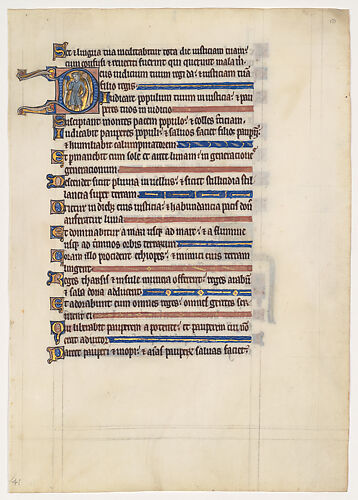 Set et lingua mea meditabitur tota die iusticiam tuam:
cum confusi et reveriti fuerint qui querunt mala m.
eus iudicium tuum regi da: et iusticiam tuam
filio regis
Iudicare populum tuum in iusticia: et pau
peres tuos in iudicio
Suscipiant montes pacem populo: et colles iusticiam.
Iudicabit pauperes populi: et salvos faciet filios pauperum:
et humiliabit calumpniatorem
Et permanebit cum sole et ante lunam: in generatione
generacionum
Descendet sicut pluvia in vellus: et sicut stillicidia stil
lancia super terram
Orietur in diebus eius iusticia: et habundancia pacis donec
auferatur luna
Et dominabitur a mari usque ad mare: et a flumine
usque ad terminos orbis terrarum
Coram illo procident ethyopes: et inimici eius terram
lingent
Reges tharsis et insule munera offerent: reges arabum
et saba dona adducent
Et adorabunt eum omnes reges: omnes gentes ser
vient ei
Quia liberabit pauperem a potente: et pauperem cui non
erat adiutor
Parcet pauperi et inopi: et animas pauperum salvas faciet: